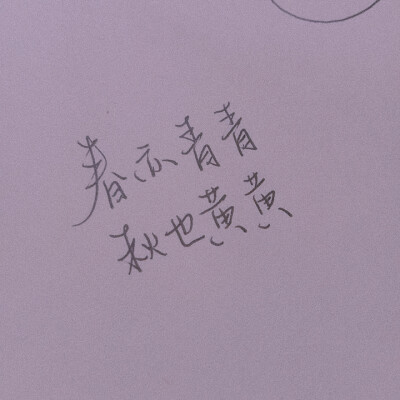 春亦青青
秋也黄黄